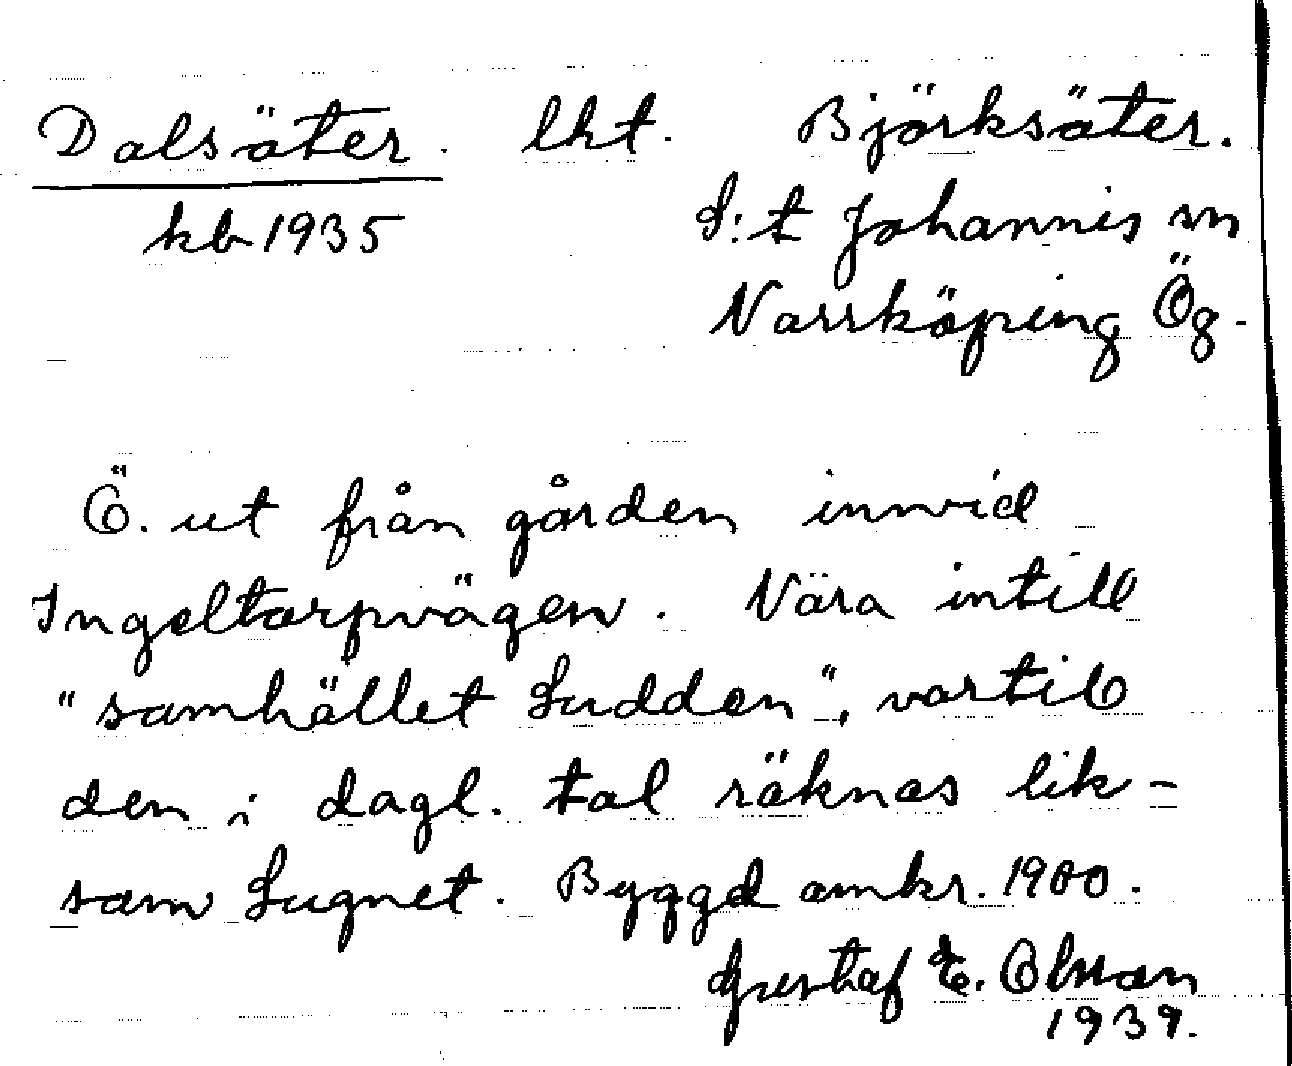 Dalsäter. lht. Björksäter.
kb 1935 S:t Johannis sn
Norrköping Ög.
Ö. ut från gården invid
Ingeltorpvägen. Nära intill
"samhället Sudden", vartill
den i dagl. tal räknas lik-
som Lugnet. Byggd omkr. 1900.
Gustaf E. Olsson
1939.